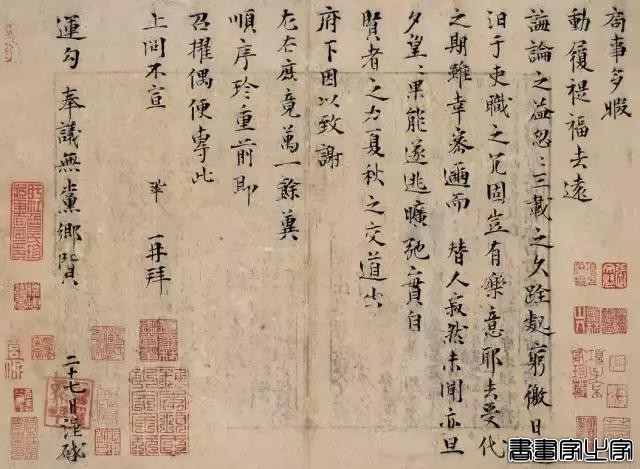 局事多暇
動履禔福去遠
誨論之益忽〻三載之久跧處窮徼日
汨于吏職之宂固豈有樂意耶去受代
之期雖幸密邇而替人寂然未聞亦旦
夕望〻果能遂逃曠弛實自
賢者之力夏秋之交道出
府下因以致謝
左右庶竟萬一餘冀
順序珍重前即
召擢偶便專此
上問不宣 鞏 再拜
運勾奉議無黨鄉賢 二十七日謹啟
書畫家之家